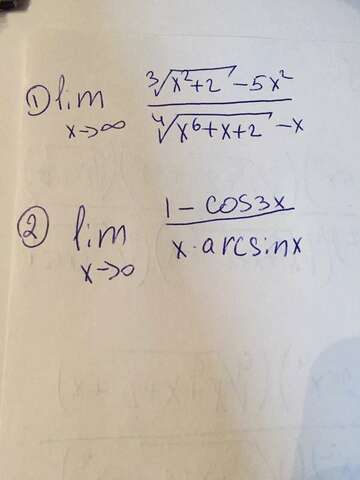 ① lim x→∞ (∛(x²+2) - 5x²) / (∜(x⁶+x+2) - x)
② lim x→0 (1 - cos3x) / (x · arcsinx)